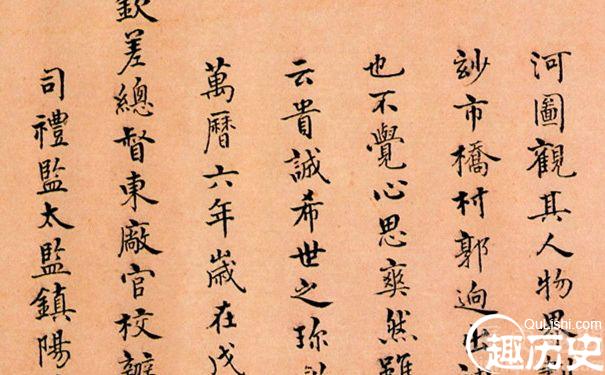 河圖觀其人物界
玅市橋村郭逈出
也不覺心思爽然雖
云貴誠希世之珎
萬曆六年歲在戊
欽差總督東廠官校辦
司禮監太監鎮陽
QuLishi.com
趣历史